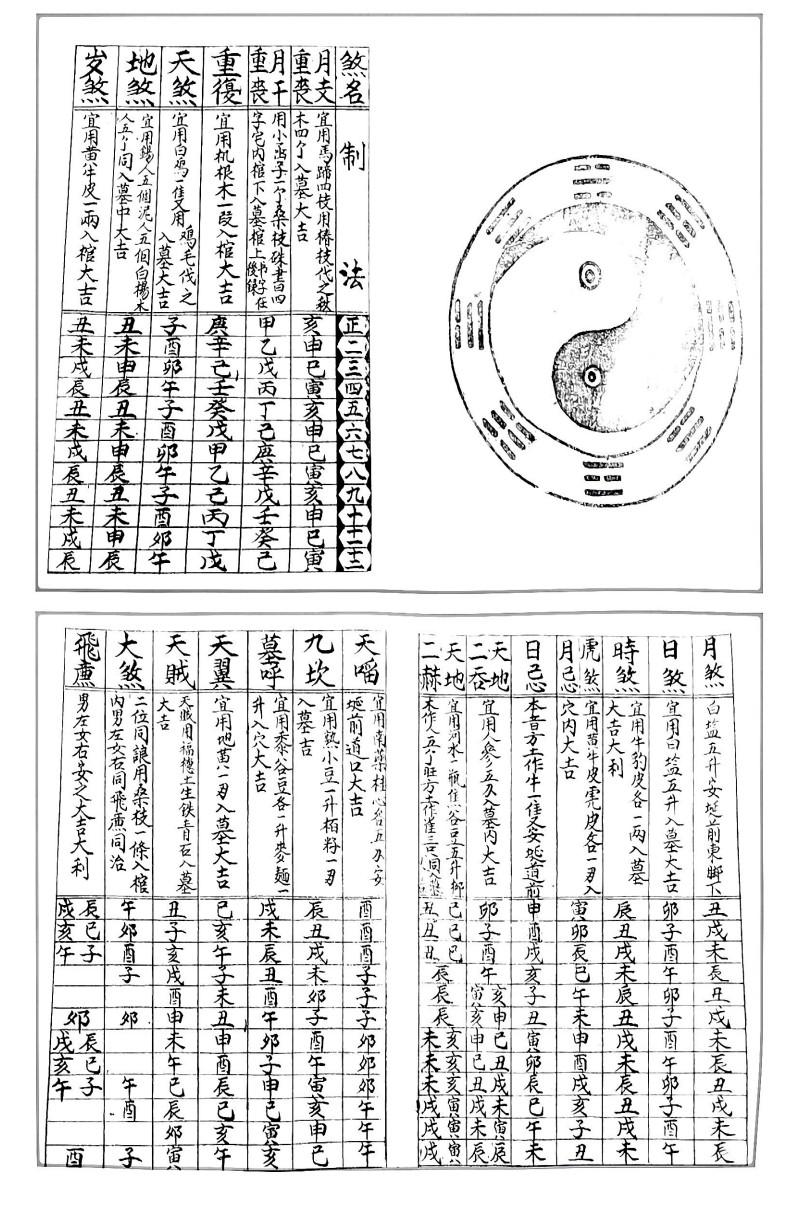 煞名 制法 正 二 三 四 五 六 七 八 九 十 十一 十二
月支重喪
宜用馬蹄四枝用椿枝代之秋
木四个入墓大吉
亥 申 巳 寅 亥 申 巳 寅 亥 申 巳 寅
月干重喪
用小函子一个桑枝硃書四
字宅内棺下入墓棺上
甲 乙 戊 丙 丁 己 庚 辛 戊 壬 癸 己
重復
宜用机根木一段入棺大吉
庚 辛 己 壬 癸 戊 甲 乙 己 丙 丁 戊
天煞
宜用白鸡一隻又用鸡毛伐之
入墓大吉
子 酉 卯 午 子 酉 卯 午 子 酉 卯 午
地煞
宜用錫人五個泥人五個白楊木
人五个同入墓中大吉
丑 未 申 辰 丑 未 申 辰 丑 未 申 辰
岁煞
宜用黄牛皮一兩入棺大吉
丑 未 戌 辰 丑 未 戌 辰 丑 未 戌 辰
月煞
白塩五升安埏前東脚下
丑 戌 未 辰 丑 戌 未 辰 丑 戌 未 辰
日煞
宜用白塩五升入墓大吉
卯 子 酉 午 卯 子 酉 午 卯 子 酉 午
時煞
宜用牛豹皮各一兩入墓
大吉大利
辰 丑 戌 未 辰 丑 戌 未 辰 丑 戌 未
虎煞月忌
宜用黄牛皮虎皮各一刄入
穴内大吉
寅 卯 辰 巳 午 未 申 酉 戌 亥 子 丑
日忌
本音方土作牛一隻又安埏道前
申 酉 戌 亥 子 丑 寅 卯 辰 巳 午 未
天地二吞
宜用人參五刄入墓内大吉
卯 子 酉 午 寅亥 亥午 申巳 巳申 丑戌 戌未 未辰 辰
天地二赫
宜用河水一瓶焦谷豆五升柳
木作人五个旺方土作
丑巳 丑巳 丑巳 辰 辰 辰 未亥 未亥 未亥 戌寅 戌寅 戌寅
天喵
宜用南藥桂心各五刄安
埏前道口大吉
酉 酉 酉 子 子 子 卯 卯 卯 午 午 午
九坎
宜用熟小豆一升栢籽一刄
入墓吉
辰 丑 戌 未 卯 子 酉 午 寅 亥 申 巳
墓呼
宜用黍谷豆各一升麥麵一
升入穴大吉
戌 未 辰 丑 酉 午 卯 子 申 巳 寅 亥
天翼
宜用地黄八刄入墓大吉
巳 亥 午 子 未 丑 申 酉 辰 巳 亥 午
天贼
天贼用福德土生铁青石入墓
大吉
丑 子 亥 戌 酉 申 未 午 巳 辰 卯 寅
大煞
二位同讓用桑枝一條入棺
内男左女右同飛廉同治
午 卯 酉 子 卯 午 酉 子
飛廉
男左女右安之大吉大利
戌辰 亥巳 午子 卯 戌辰 亥巳 午子 酉